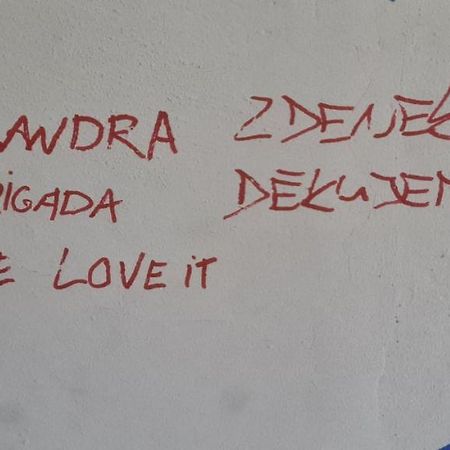 ANDRA
RIGADA
E LOVE iT
ZDENEK
DĚKUJEM